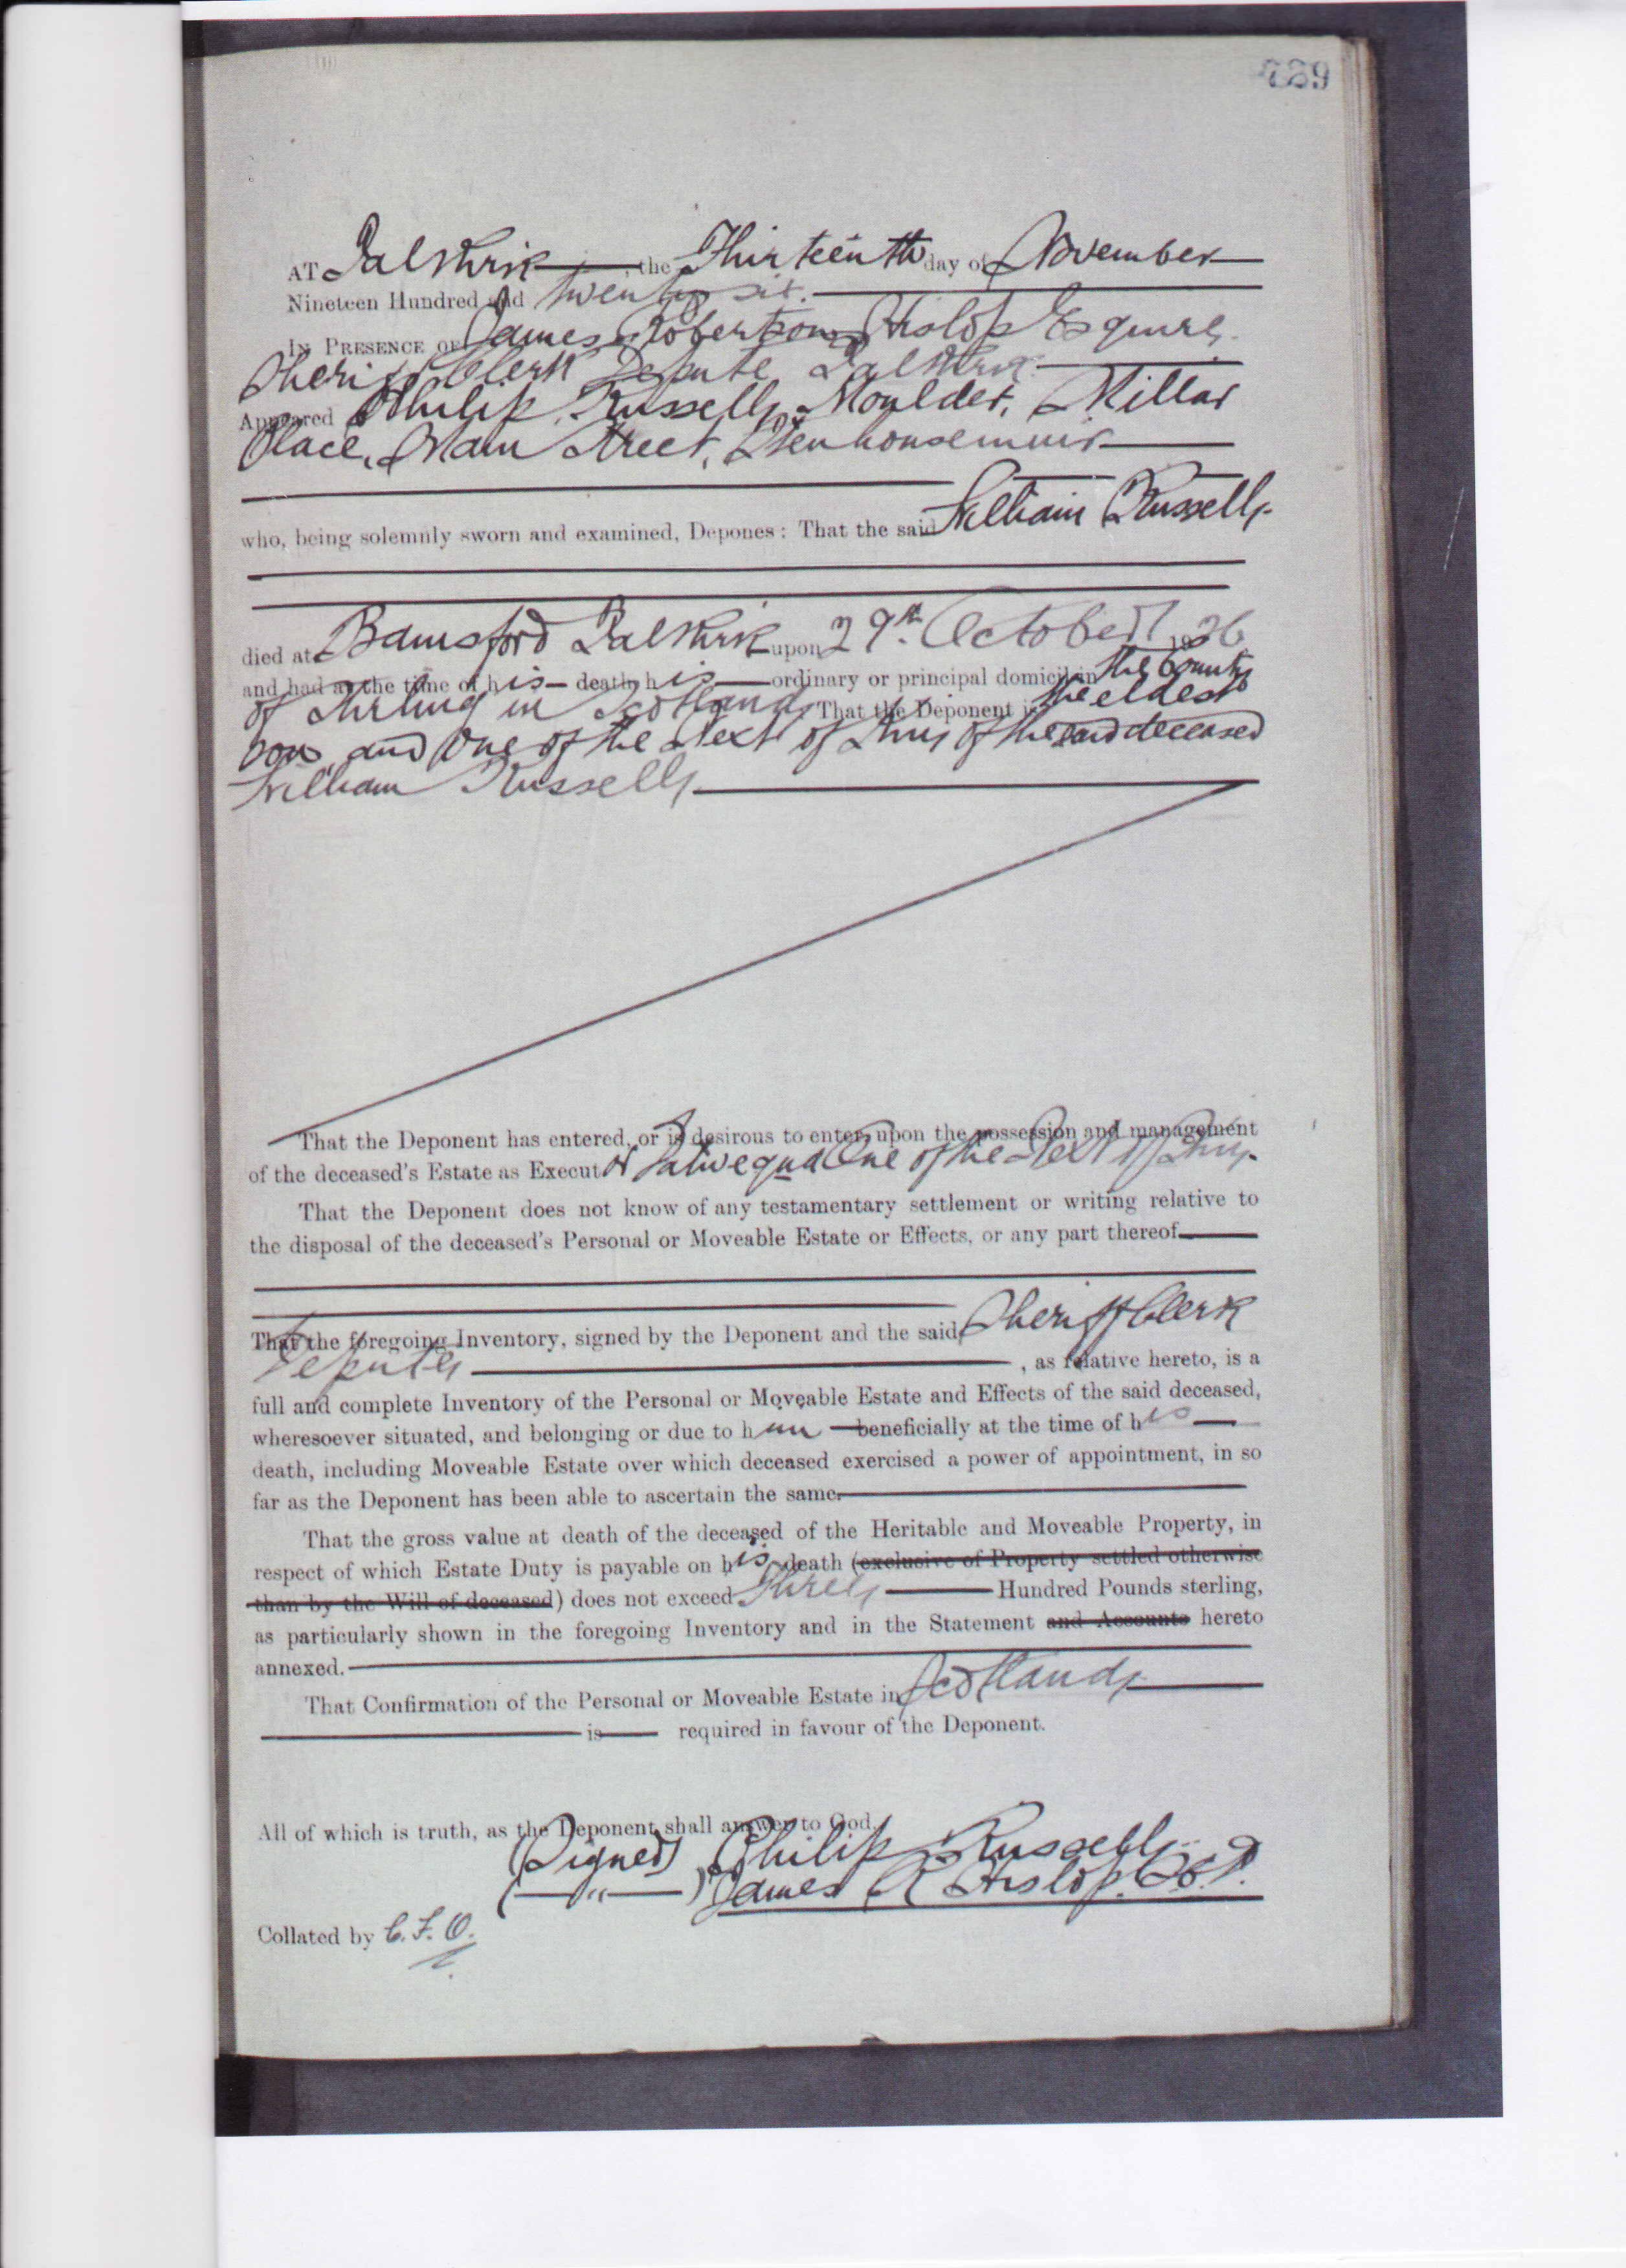 739
AT Falkirk, the Thirteenth day of November
Nineteen Hundred and twenty six.
IN PRESENCE OF James Robertson Hislop Esquire,
Sheriff Clerk Depute Falkirk.
Appeared Philip Russell, Moulder, Millar
Place, Main Street, Stenhousemuir
who, being solemnly sworn and examined, Depones: That the said William Russell,
died at Bainsford Falkirk upon 29th October 1926
and had at the time of his death his ordinary or principal domicil in the County
of Stirling in Scotland, That the Deponent is the eldest
son and One of the Next of Kin of the said deceased
William Russell,
That the Deponent has entered, or is desirous to enter, upon the possession and management
of the deceased's Estate as Executor Dative qua One of the Next of Kin,
That the Deponent does not know of any testamentary settlement or writing relative to
the disposal of the deceased's Personal or Moveable Estate or Effects, or any part thereof
That the foregoing Inventory, signed by the Deponent and the said Sheriff Clerk
Depute, as relative hereto, is a
full and complete Inventory of the Personal or Moveable Estate and Effects of the said deceased,
wheresoever situated, and belonging or due to him beneficially at the time of his
death, including Moveable Estate over which deceased exercised a power of appointment, in so
far as the Deponent has been able to ascertain the same.
That the gross value at death of the deceased of the Heritable and Moveable Property, in
respect of which Estate Duty is payable on his death (exclusive of Property settled otherwise
than by the Will of deceased) does not exceed Three Hundred Pounds sterling,
as particularly shown in the foregoing Inventory and in the Statement and Accounts hereto
annexed.
That Confirmation of the Personal or Moveable Estate in Scotland,
is required in favour of the Deponent.
All of which is truth, as the Deponent shall answer to God.
(Signed) Philip Russell,
( " ) James R Hislop.
Collated by C.F.O.